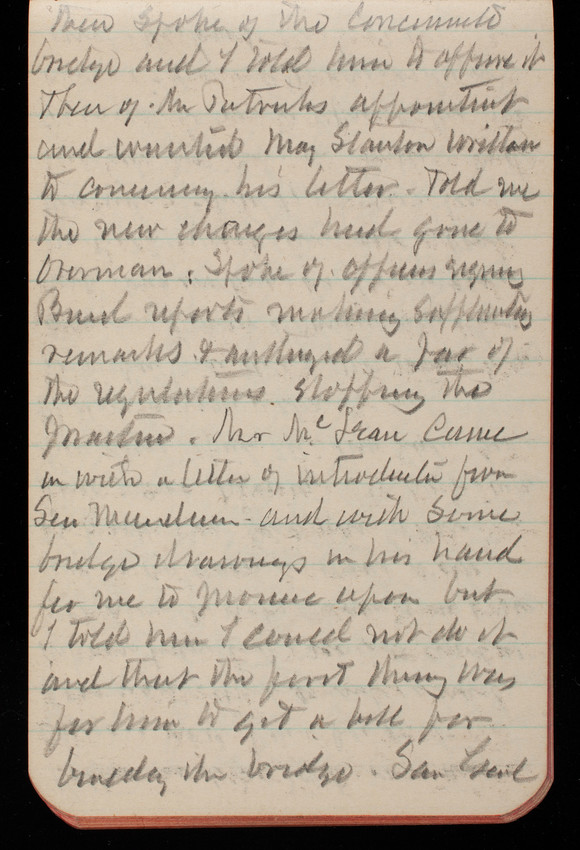 then spoke of the Cincinnati
bridge and I told him to approve it
Then of Mr Patricks appointment
and wanted Maj Stanton written
to concerning his letter. Told me
the new charges had gone to
Overman. Spoke of officers signing
Board reports making supplementary
remarks & a par of
the regulations stopping the
practice. Mr McLean came
in with a letter of introduction from
Sen and with some
bridge drawings in his hand
for me to pronounce upon but
I told him I could not do it
and that the first thing was
for him to get a bill for
building the bridge. Saw Genl